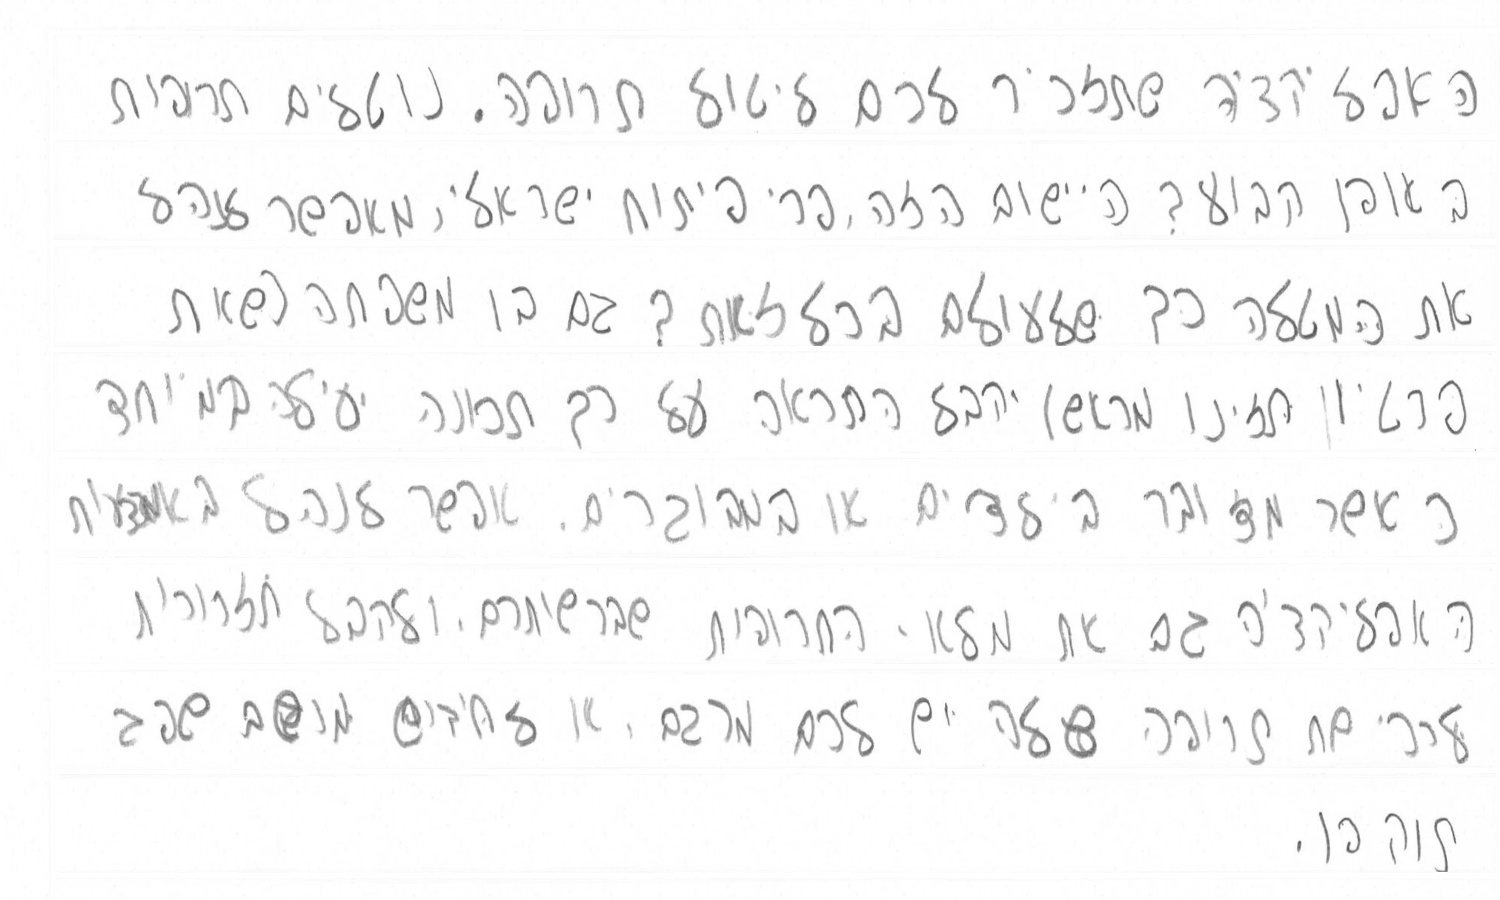 האפליקציה שתזכיר לכם ליטול תרופה. נוטלים תרופות
באופן קבוע? היישום הזה, פרי פיתוח ישראלי, מאפשר לנהל
את המטלה כך שלעולם בכל זאת? גם בן משפחה נשאת
פרטיון תזינו מראש) יקבל התראה על כך תכונה יעילה במיוחד
כאשר מדובר בילדים או במבוגרים. אפשר לנהל באמצעות
האפליקציה גם את מלאי התרופות שברשותכם, ולקבל תזכורת
לרכישת תרופה שלה יש לכם מרגם, או לחידוש מרשם שפג
תוקפו.